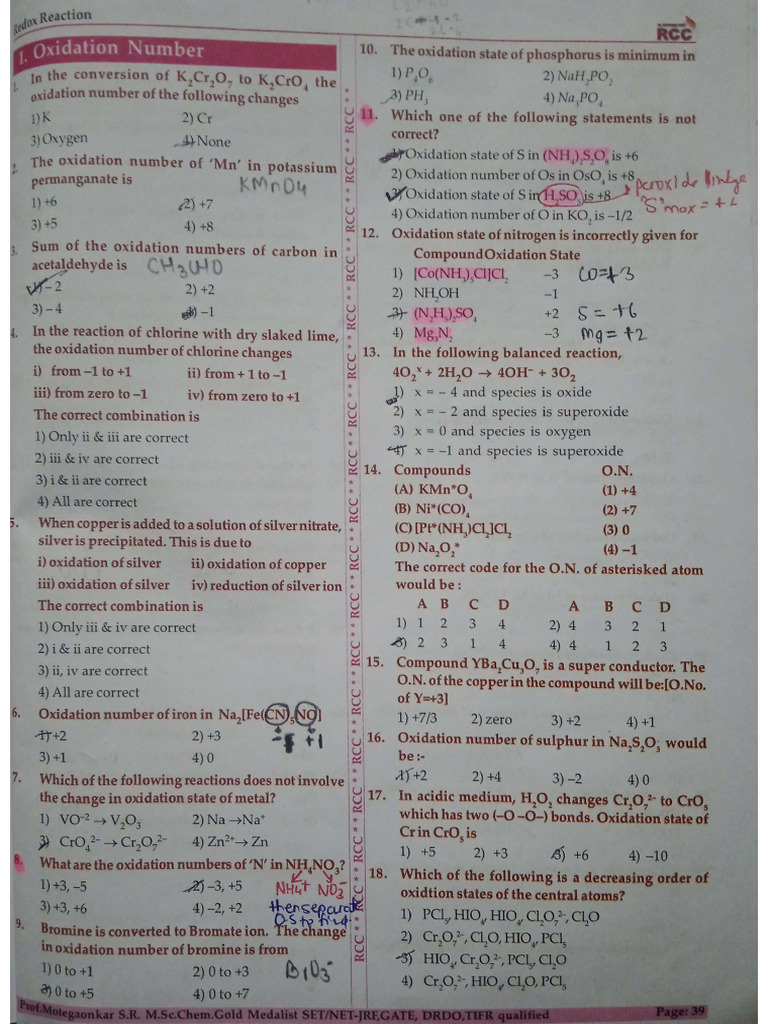 Redox Reaction
RCC
1. Oxidation Number
1. In the conversion of K2Cr2O7 to K2CrO4 the
oxidation number of the following changes
1) K 2) Cr
3) Oxygen 4) None
2. The oxidation number of 'Mn' in potassium
permanganate is
KMnO4
1) +6 2) +7
3) +5 4) +8
3. Sum of the oxidation numbers of carbon in
acetaldehyde is
CH3CHO
1) – 2 2) +2
3) – 4 4) –1
4. In the reaction of chlorine with dry slaked lime,
the oxidation number of chlorine changes
i) from –1 to +1 ii) from + 1 to –1
iii) from zero to –1 iv) from zero to +1
The correct combination is
1) Only ii & iii are correct
2) iii & iv are correct
3) i & ii are correct
4) All are correct
5. When copper is added to a solution of silver nitrate,
silver is precipitated. This is due to
i) oxidation of silver ii) oxidation of copper
iii) oxidation of silver iv) reduction of silver ion
The correct combination is
1) Only iii & iv are correct
2) i & ii are correct
3) ii, iv are correct
4) All are correct
6. Oxidation number of iron in Na2[Fe(CN)5NO]
1) +2 2) +3
+1
3) +1 4) 0
7. Which of the following reactions does not involve
the change in oxidation state of metal?
1) VO–2 → V2O3 2) Na → Na+
3) CrO4 2– → Cr2O7 2– 4) Zn2+ → Zn
8. What are the oxidation numbers of 'N' in NH4NO3?
1) +3, –5 2) –3, +5
NH4+ NO3–
3) +3, +6 4) –2, +2
then separat
9. Bromine is converted to Bromate ion. The change
in oxidation number of bromine is from
1) 0 to +1 2) 0 to +3
BrO3–
3) 0 to +5 4) 0 to +7
RCC ** RCC ** RCC ** RCC ** RCC ** RCC ** RCC ** RCC ** RCC ** RCC ** RCC ** RCC **
10. The oxidation state of phosphorus is minimum in
1) P4O6 2) NaH2PO2
3) PH3 4) Na3PO4
11. Which one of the following statements is not
correct?
1) Oxidation state of S in (NH4)2S2O8 is +6
2) Oxidation number of Os in OsO4 is +8
3) Oxidation state of S in H2SO5 is +8
peroxide linkge
'S' max = +
4) Oxidation number of O in KO2 is –1/2
12. Oxidation state of nitrogen is incorrectly given for
Compound Oxidation State
1) [Co(NH3)5Cl]Cl2 –3 CO=+3
2) NH2OH –1
3) (N2H5)2SO4 +2 S = +6
4) Mg3N2 –3 Mg = +2
13. In the following balanced reaction,
4O2x + 2H2O → 4OH– + 3O2
1) x = – 4 and species is oxide
2) x = – 2 and species is superoxide
3) x = 0 and species is oxygen
4) x = –1 and species is superoxide
14. Compounds O.N.
(A) KMn*O4 (1) +4
(B) Ni*(CO)4 (2) +7
(C) [Pt*(NH3)Cl2]Cl2 (3) 0
(D) Na2O2* (4) –1
The correct code for the O.N. of asterisked atom
would be :
A B C D A B C D
1) 1 2 3 4 2) 4 3 2 1
3) 2 3 1 4 4) 4 1 2 3
15. Compound YBa2Cu3O7 is a super conductor. The
O.N. of the copper in the compound will be:[O.No.
of Y=+3]
1) +7/3 2) zero 3) +2 4) +1
16. Oxidation number of sulphur in Na2S2O3 would
be :-
1) +2 2) +4 3) –2 4) 0
17. In acidic medium, H2O2 changes Cr2O7 2– to CrO5
which has two (–O –O–) bonds. Oxidation state of
Cr in CrO5 is
1) +5 2) +3 3) +6 4) –10
18. Which of the following is a decreasing order of
oxidtion states of the central atoms?
1) PCl5, HIO4, HIO4, Cl2O7 2–, Cl2O
2) Cr2O7 2–, Cl2O, HIO4, PCl5
3) HIO4, Cr2O7 2–, PCl5, Cl2O
4) Cr2O7 2–, HIO4, Cl2O, PCl5
Prof.Motegaonkar S.R. M.Sc.Chem.Gold Medalist SET/NET-JRF,GATE, DRDO,TIFR qualified Page: 39